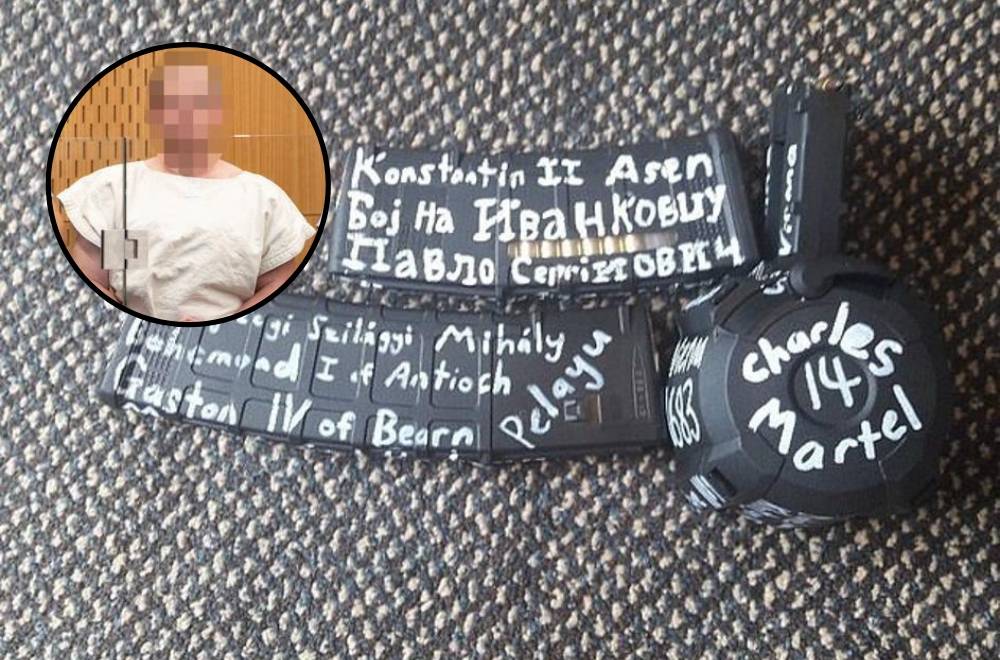 Konstantin II Asen
Бој На Иванковцу
Павло
Szilágyi Mihály
Bohemond I of Antioch
Gaston IV of Bearn
Pelayu
charles
14
Martel